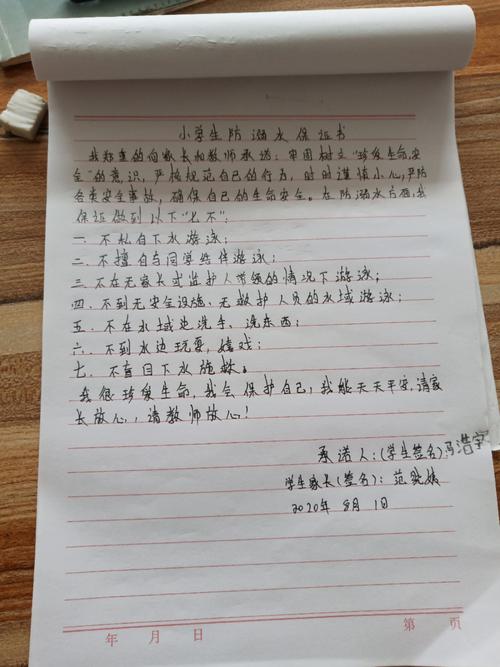 小学生防溺水保证书
我郑重的向家长和教师承诺：牢固树立“珍爱生命，安
全”的意识，严格规范自己的行为，时时谨慎小心，严防
各类安全事故，确保自己的生命安全。在防溺水方面，我
保证做到以下“七不”：
一、不私自下水游泳；
二、不擅自与同学结伴游泳；
三、不在无家长或监护人带领的情况下游泳；
四、不到无安全设施、无救护人员的水域游泳；
五、不在水域边洗手、洗东西；
六、不到水边玩耍，嬉戏；
七、不盲目下水施救。
我很珍爱生命，我会保护自己；我能天天平安，请家
长放心，请教师放心！
承诺人：(学生签名)冯浩宇
学生家长(签名)：范
2020年8月1日
年 月 日 第 页